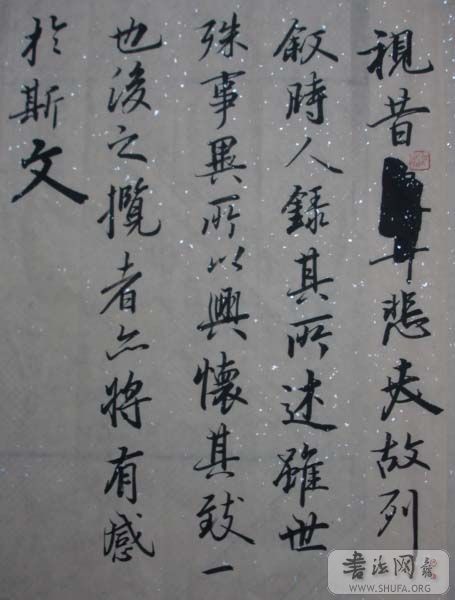 視昔悲夫故列
叙時人録其所述雖世
殊事異所以興懷其致一
也後之攬者亦將有感
於斯文
書法网
WWW.SHUFA.ORG